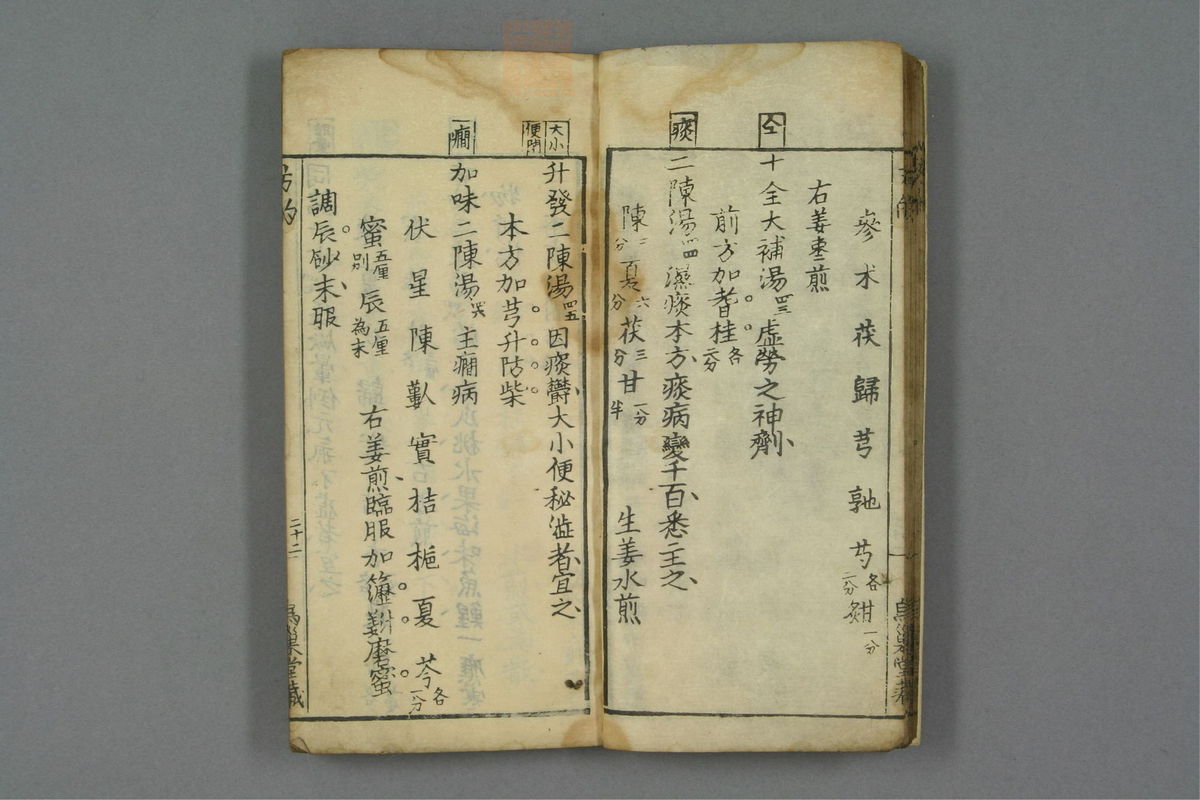 參 朮 茯 歸 芎 芍各二分 甘一分
右姜棗煎
仝
十全大補湯四三 虛勞之神劑
前方加耆桂各二分
痰
二陳湯四四 濕痰本方痰病變千百悉主之
陳二分 夏六分 茯三分 甘一分半 生姜水煎
大小便閉
升發二陳湯四五 因痰欝大小便秘澁者宜之
本方加芎升防柴
癇
加味二陳湯四六 主癇病
伏 星 陳 實 桔 梔 夏 芩各一分
蜜五厘別 辰五厘為末 右姜煎臨服加瀝姜汁磨蜜
調辰砂末服
方的
二十二
烏巢堂藏